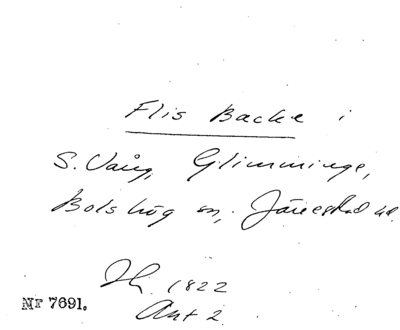 Flis Backe i
S. Vång, Glimminge,
Bolshög sn, Järrestad hd.
Jh. 1822
Akt 2
NF 7691.